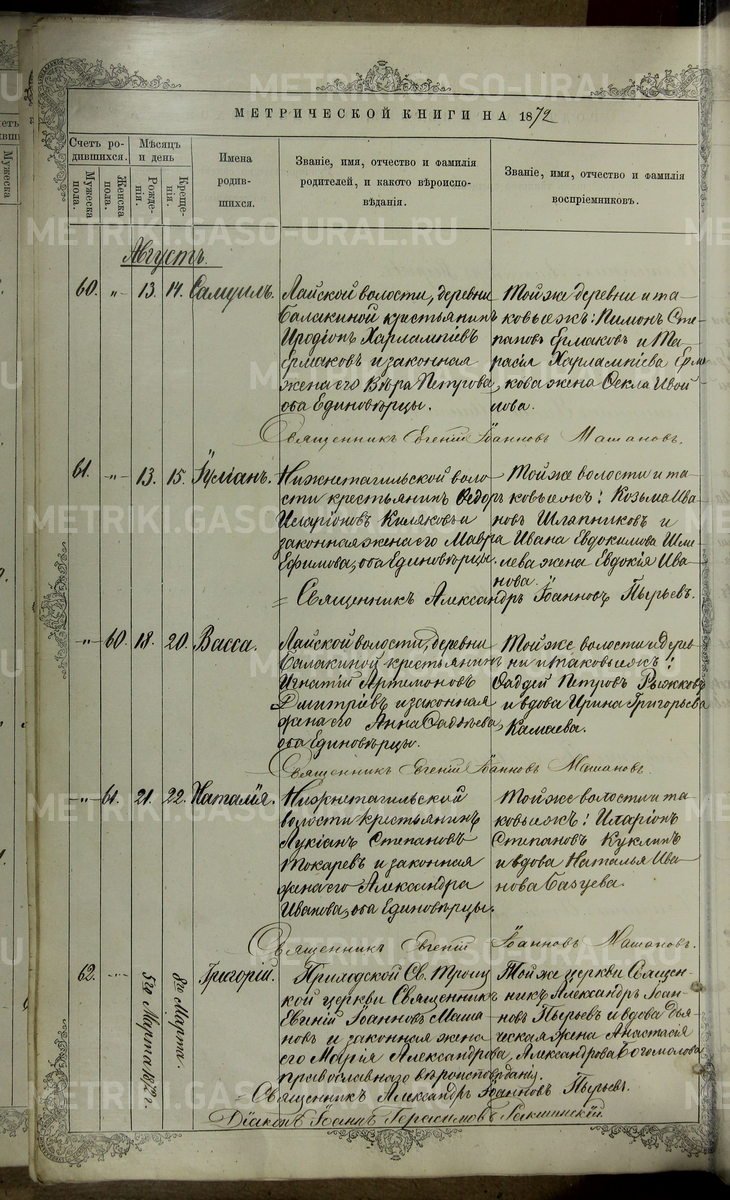 METRIKI.GASO-URAL.RU
МЕТРИЧЕСКОЙ КНИГИ НА 1872
Счетъ ро-
дившихся.
Мужеска
пола.
Женска
пола.
Мѣсяцъ
и день
Рожде-
нія.
Креще-
нія.
Имена
родив-
шихся.
Званіе, имя, отчество и фамилія
родителей, и какого вѣроиспо-
вѣданія.
Званіе, имя, отчество и фамилія
воспріемниковъ.
Августъ.
60. " 13. 14. Самуилъ.
Лайской волости, деревни
Балакиной крестьянинъ
Иродіонъ Харлампіевъ
Ермаковъ и законная
жена его Вѣра Петрова,
оба Единовѣрцы.
Той же деревни и та-
ковыежъ: Пимонъ Сте-
пановъ Ермаковъ и Та-
расія Харлампіева Ерма
кова жена Ѳекла Ивой
лова.
Священникъ Евгеній Іоанновъ Машановъ.
61. " 13. 15. Іуліанъ.
Нижнетагильской воло-
сти крестьянинъ Ѳедоръ
Иларіоновъ Киляковъ и
законная жена его Мавра
Ефимова, оба Единовѣрцы.
Той же волости и та-
ковыежъ: Козьма Ива
новъ Шляпниковъ и
Ивана Евдокимова Шме
лева жена Евдокія Ива-
нова.
Священникъ Александръ Іоанновъ Пырьевъ.
" 60 18. 20. Васса.
Лайской волости, деревни
Балакиной крестьянинъ
Игнатій Артемоновъ
Дмитріевъ и законная
жена его Анна Савѣльева,
оба Единовѣрцы.
Той же волости и дерев
ни и таковыежъ:
Ѳаддей Петровъ Рыжковъ
и вдова Ирина Григорьева
Камаева.
Священникъ Евгеній Іоанновъ Машановъ.
" 61. 21. 22. Наталія.
Нижнетагильской
волости крестьянинъ
Лукіанъ Степановъ
Токаревъ и законная
жена его Александра
Иванова, оба Единовѣрцы.
Той же волости и та-
ковыежъ: Иларіонъ
Степановъ Куклинъ
и вдова Наталья Ива
нова
Священникъ Евгеній Іоанновъ Машановъ.
62. " 5го Марта 1872 г. 8го Марта. Григорій.
Приходской Св. Троиц
кой церкви Священникъ
Евгеній Іоанновъ Маша
новъ и законная жена
его Марія Александрова,
православнаго вѣроисповѣданія.
Той же церкви Священ-
никъ Александръ Іоан-
новъ Пырьевъ и вдова Дья-
ческая жена Анастасія
Александрова Богомолова
Священникъ Александръ Іоанновъ Пырьевъ.
Діаконъ Іоаннъ Герасимовъ